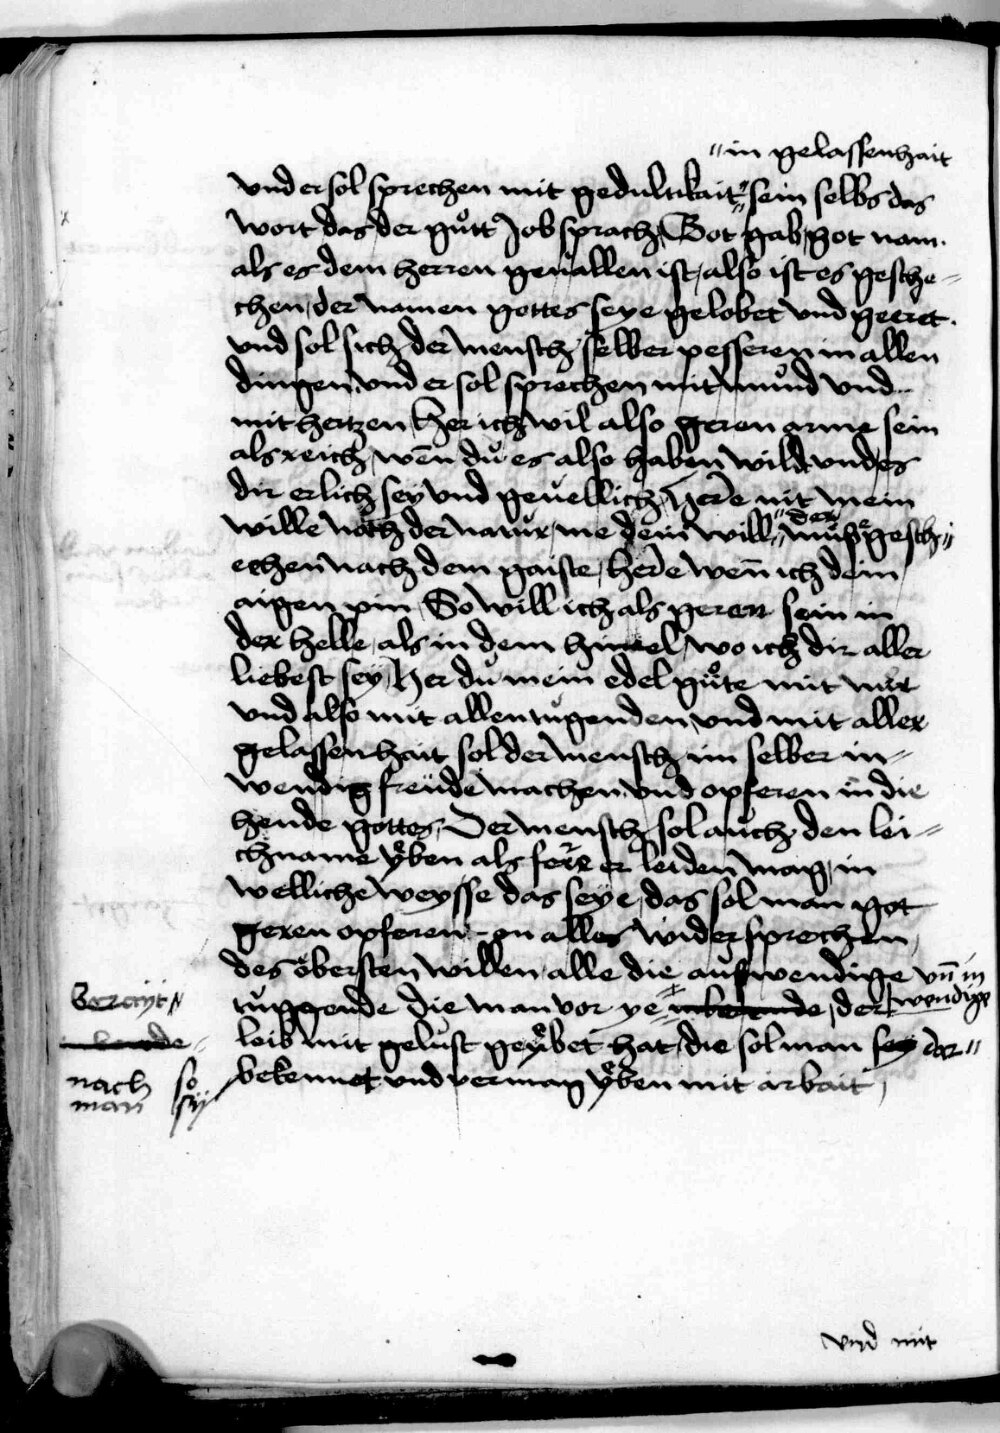 "in gelassenhait
vnd er sol sprechen mit gedultikait " sein selbs das
wort das der gůtt Job sprach, Got gab, got nam.
als es dem herren geuallen ist, also ist es gesche=
chen, der namen gottes seye gelobet vnd geeret.
vnd sol sich der mensch selber pesseren in allen
dingen, vnd er sol sprechen mit mund vnd
mit hertzen, Her ich wil also geren arme sein
als reich, wen̄ dů es also haben wild, vnd es
dir erlich sey vnd geuellich, Here nit mein
der
wille nach der natur, me dein will " můß gesch=
echen nach dem gaiste, here wen̄ ich dein
aigen pin, So will ich als geren sein in
der helle, als in dem himel, wo ich dir aller
liebest sey, Her dů mein edel gůte mit mir
vnd also mit allen tugenden, vnd mit aller
gelassenhait sol der mensch im selber in=
wendig freude machen, vnd opferen in die
hende gottes, Der mensch sol auch den lei=
chname ÿben als ferre er leiden mag, in
welliche weysse das seye, das sol man got
geren opferen - on alles widersprechen,
des öbersten willen, alle die auswendige vn̄ in
wendige
tuggende die man vor ye der
leib mit gelust geÿbet hat, die sol man sey dar=
bekennet vnd vermag ÿben mit arbait,
nach so
man sÿ
vnd mit